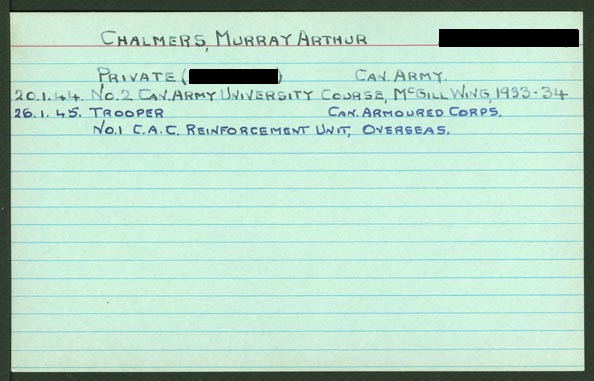 CHALMERS, MURRAY ARTHUR
PRIVATE ( ) CAN. ARMY.
20.1.44. NO. 2 CAN. ARMY UNIVERSITY COURSE, MCGILL WING 1933-34
26.1.45. TROOPER CAN. ARMOURED CORPS.
NO.1 C.A.C. REINFORCEMENT UNIT, OVERSEAS.